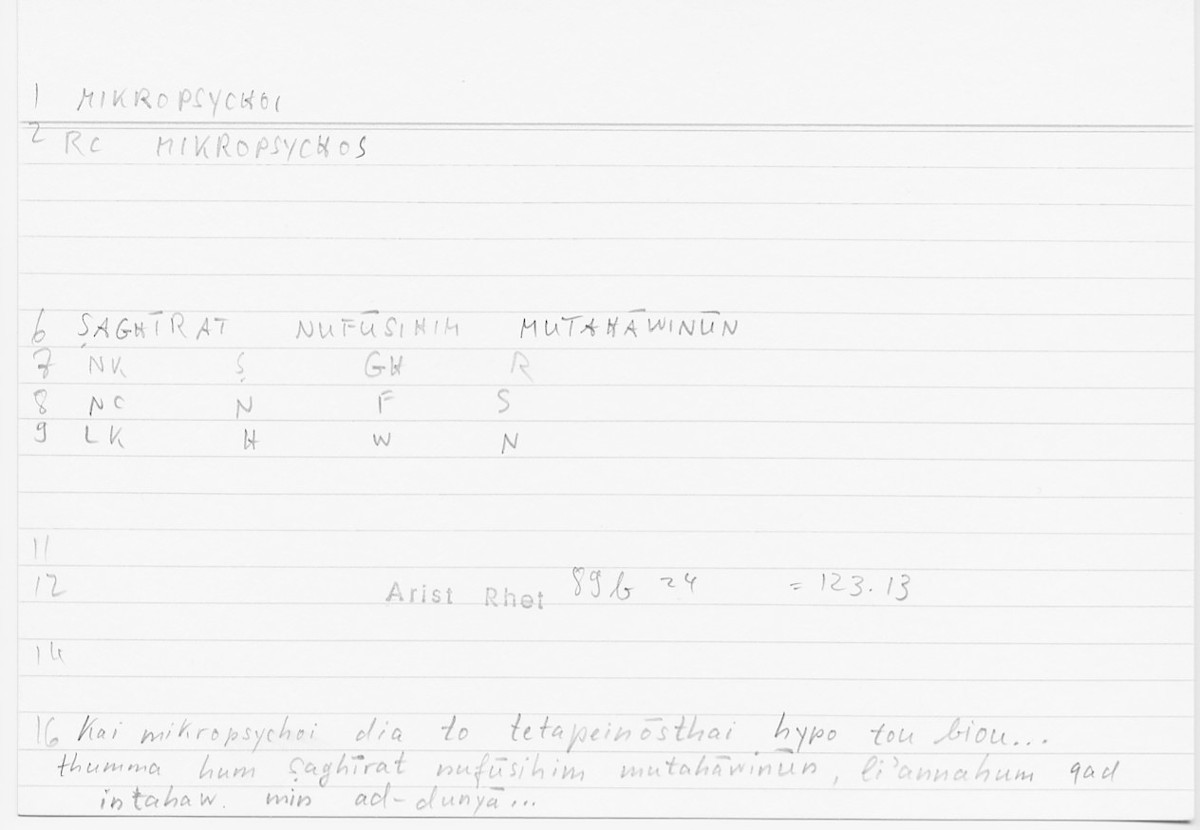 1 MIKROPSYCHOI
2 RC MIKROPSYCHOS
6 ṢAGHĪRAT NUFŪSIHIM MUTAHĀWINŪN
7 NK Ṣ GH R
8 NC N F S
9 LK H W N
11
12 Arist Rhet 89b 24 = 123.13
14
16 Kai mikropsychoi dia to tetapeinōsthai hypo tou biou...
thumma hum ṣaghīrat nufūsihim mutahāwinūn, li'annahum qad
intahaw. min ad-dunyā...